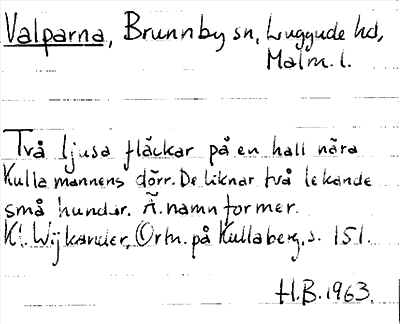 Valparna, Brunnby sn, Luggude hd,
Malm. l.
Två ljusa fläckar på en hall nära
Kullamannens dörr. De liknar två lekande
små hundar. Ä. namnformer.
K. Wijkander, Ortn. på Kullaberg, s. 151.
H.B. 1963.